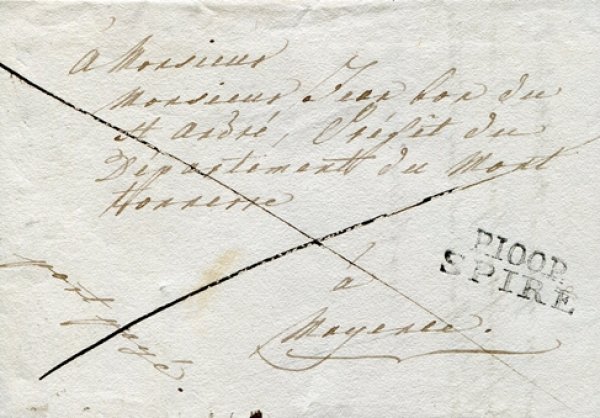 à Monsieur
Monsieur Jean bon du
St André, Préfet du
Département du Mont
tonnerre
à
Mayence.
port payé.
P.100.P.
SPIRE